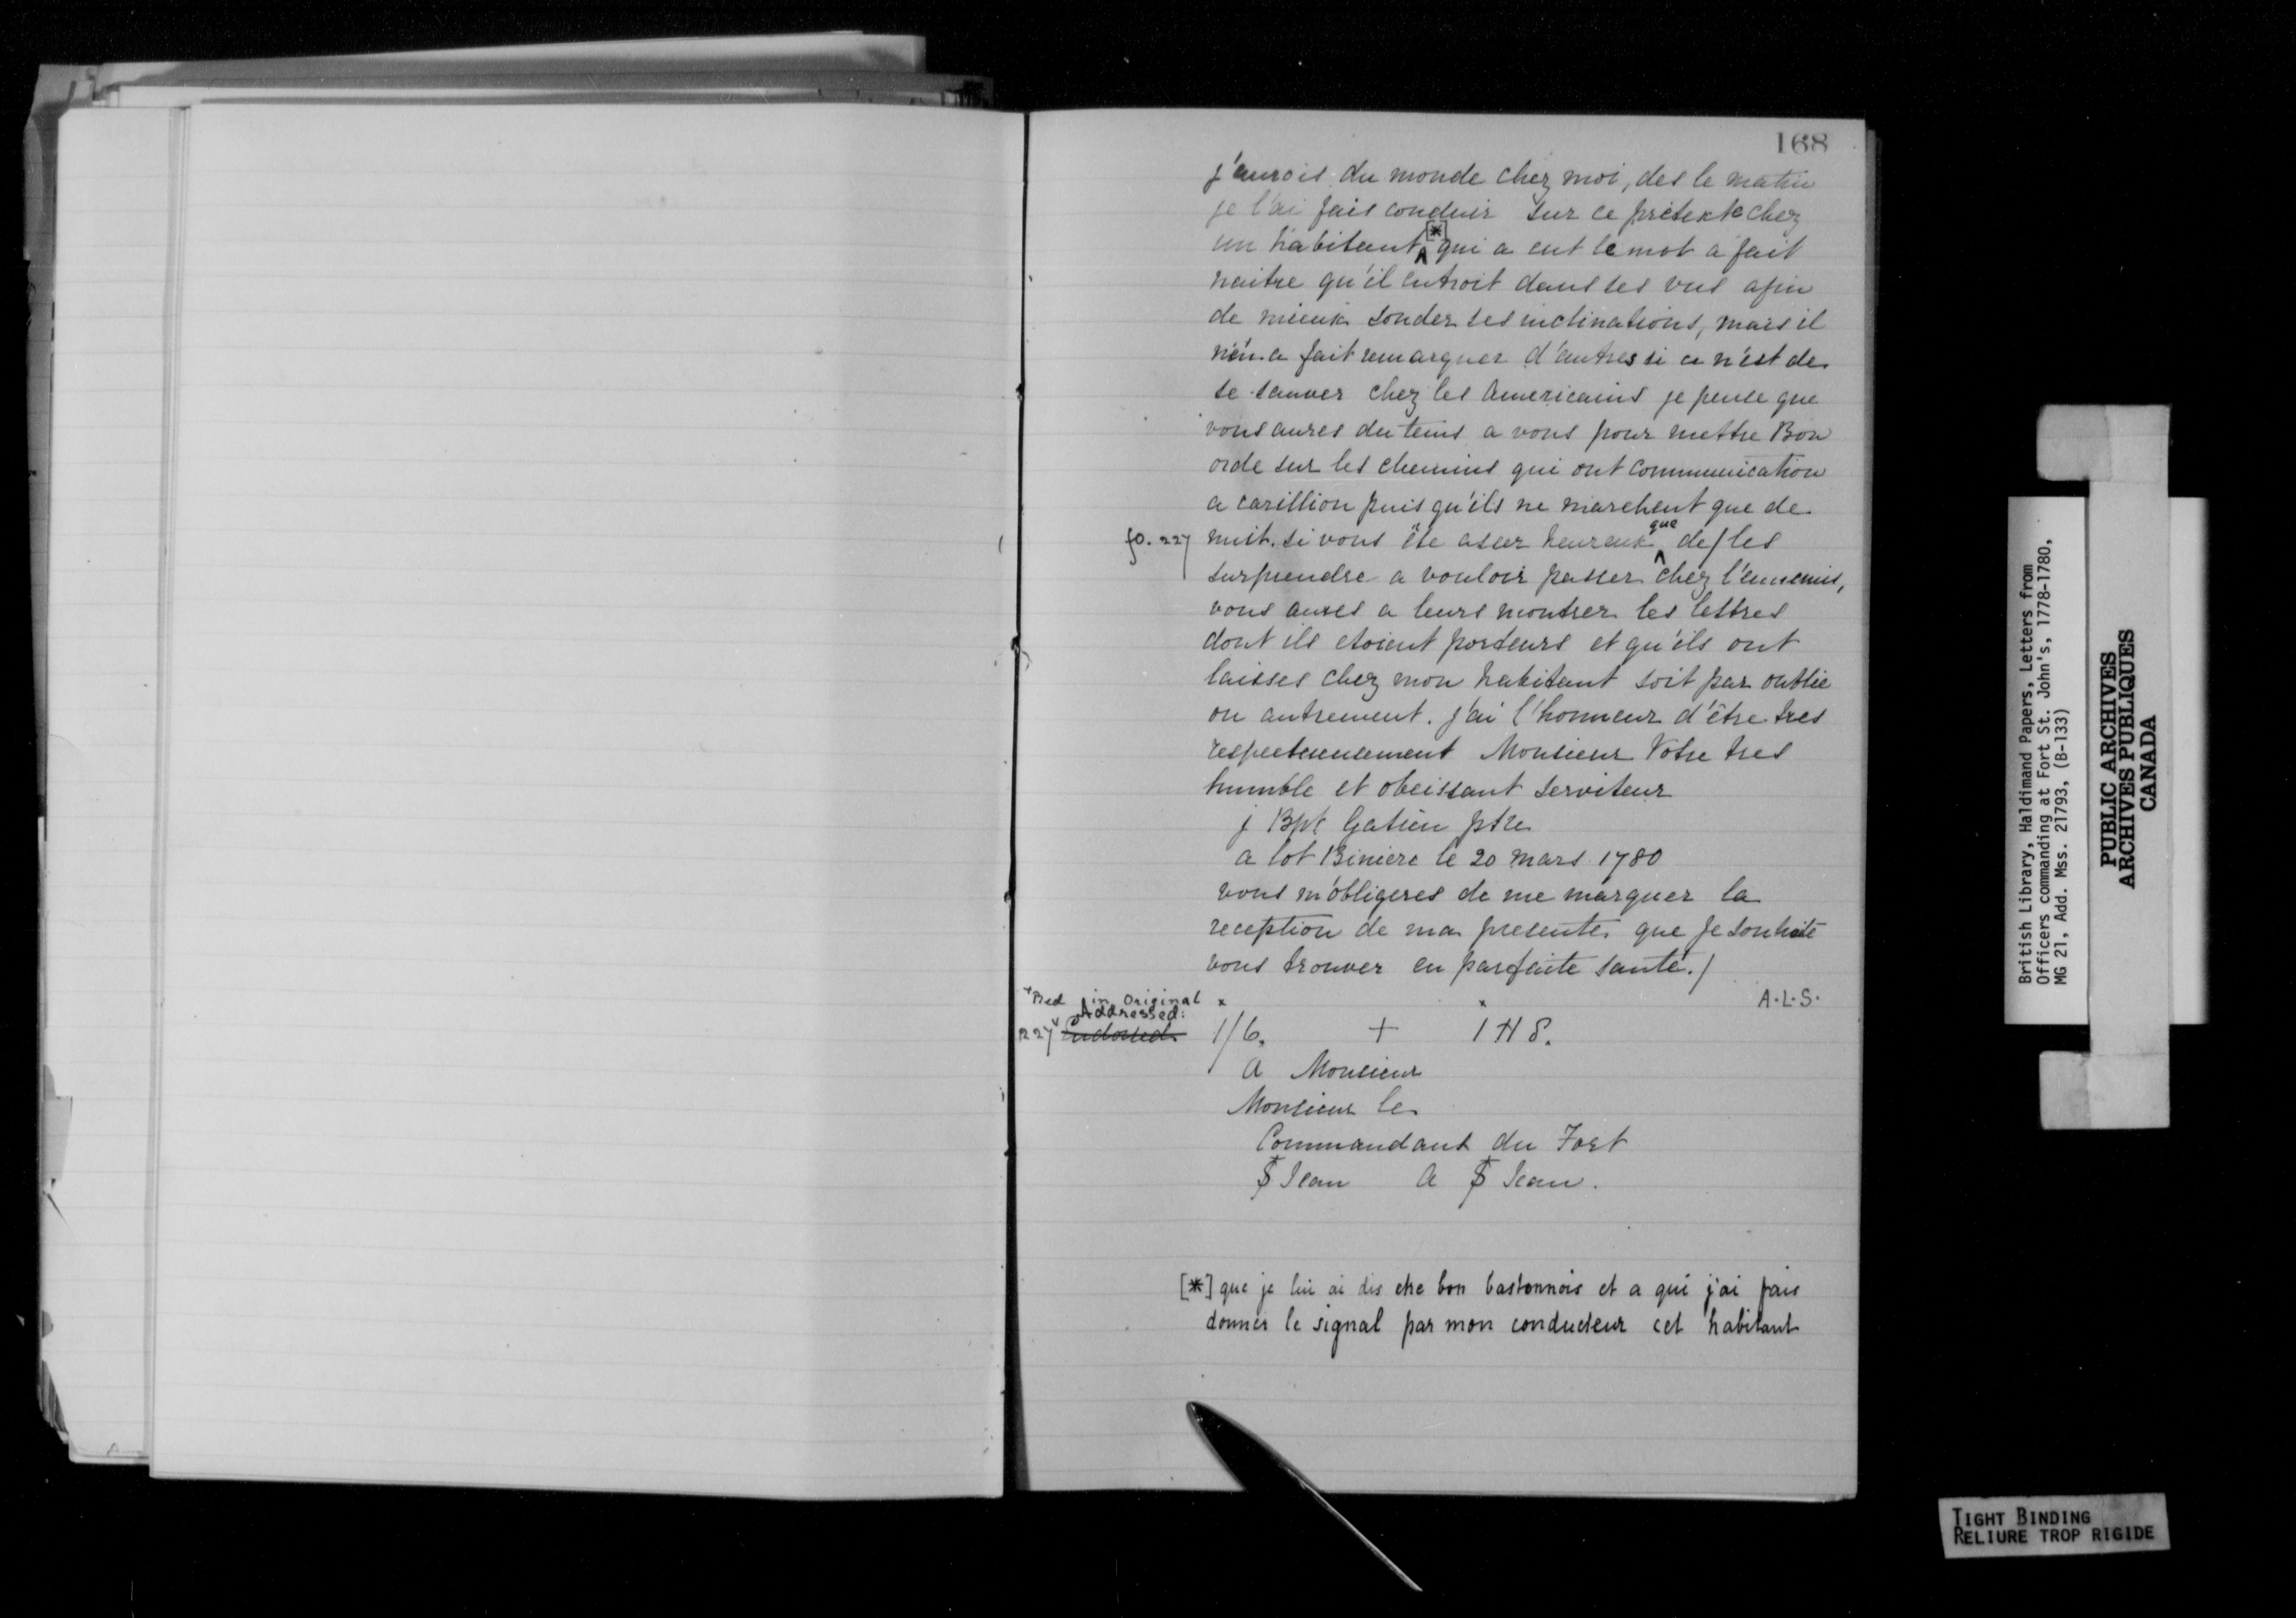 168
j'aurois du monde chez moi, des le matin
je l'ai fais conduir sur ce pretexte chez
un habitant [*] qui a eut le mot a fait
naitre qu'il entroit dans ses vus afin
de mieux sonder ses inclinations, mais il
n'en a fait remarquer d'autres si ce n'est de
se sauver chez les Americains je pense que
vous aures du tems a vous pour mettre Bon
orde sur les chemins qui ont communication
a carillion puis qu'ils ne marchent que de
fo. 227 nuit. si vous ête assez heureux que de / les
surprendre a vouloir passer chez l'ennemis,
vous aures a leurs montrer les lettres
dont ils etoient porteurs et qu'ils ont
laisses chez mon habitant soit par oublie
ou autrement. j'ai l'honneur d'être tres
respectueusement Monsieur Votre tres
humble et obeissant serviteur
j Bpt Gatien ptre
a lot Biniere le 20 mars 1780
vous m'obligeres de me marquer la
reception de ma presente que je souhaite
vous trouver en parfaite santé. /
x Red in Original x x A.L.S.
Addressed:
227 v Endorsed 1/6. + IHS.
A Monsieur
Monsieur le
Commandant du Fort
St Jean A St Jean.
[*] que je lui ai dis etre bon bastonnois et a qui j'ai fais
donner le signal par mon conducteur cet habitant
British Library, Haldimand Papers, Letters from
Officers commanding at Fort St. John's, 1778-1780,
MG 21, Add. Mss. 21793, (B-133)
PUBLIC ARCHIVES
ARCHIVES PUBLIQUES
CANADA
TIGHT BINDING
RELIURE TROP RIGIDE